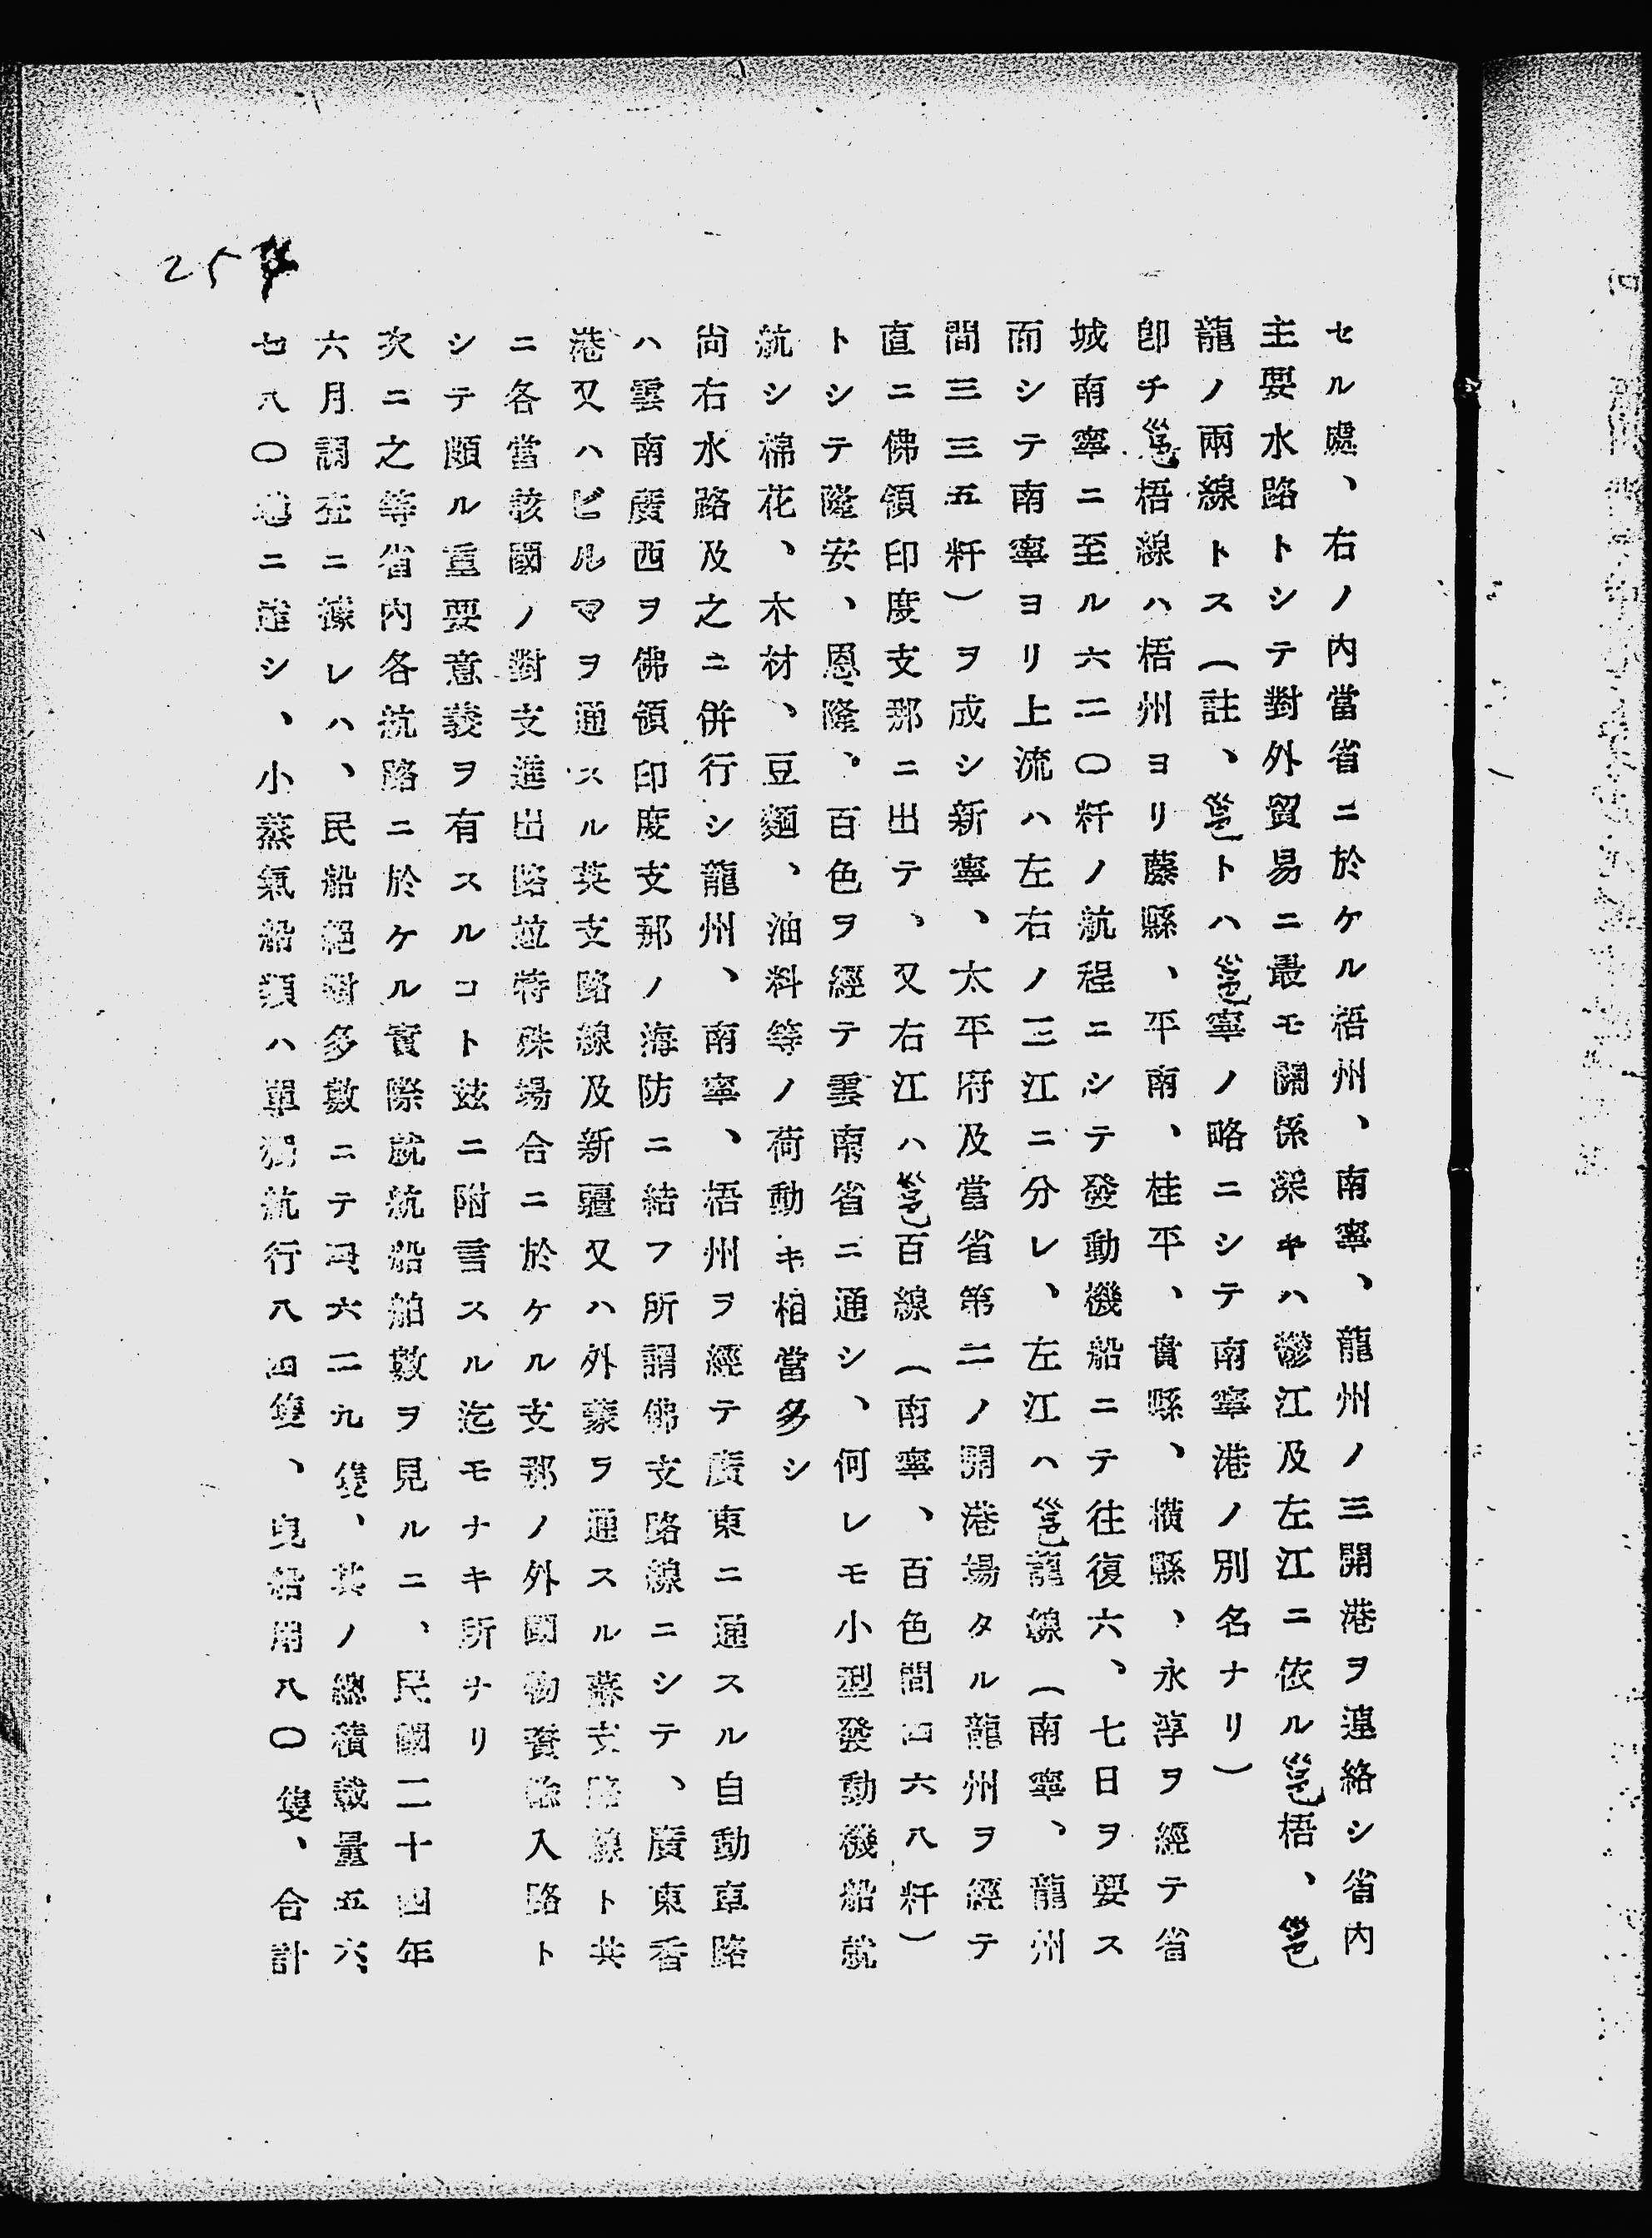 セル處、右ノ内當省ニ於ケル梧州、南寧、龍州ノ三開港ヲ連絡シ省内
主要水路トシテ對外貿易ニ最モ關係深キハ鬱江及左江ニ依ル邕梧、邕
龍ノ兩線トス（註、邕トハ邕寧ノ略ニシテ南寧港ノ別名ナリ）
卽チ邕梧線ハ梧州ヨリ藤縣、平南、桂平、貴縣、橫縣、永淳ヲ經テ省
城南寧ニ至ル六二〇粁ノ航程ニシテ發動機船ニテ往復六、七日ヲ要ス
而シテ南寧ヨリ上流ハ左右ノ二江ニ分レ、左江ハ邕龍線（南寧、龍州
間三三五粁）ヲ成シ新寧、太平府及當省第二ノ開港場タル龍州ヲ經テ
直ニ佛領印度支那ニ出テ、又右江ハ邕百線（南寧、百色間四六八粁）
トシテ隆安、恩隆、百色ヲ經テ雲南省ニ通シ、何レモ小型發動機船就
航シ棉花、木材、豆麵、油料等ノ荷動キ相當多シ
尙右水路及之ニ併行シ龍州、南寧、梧州ヲ經テ廣東ニ通スル自動車路
ハ雲南廣西ヲ佛領印度支那ノ海防ニ結フ所謂佛支路線ニシテ、廣東香
港又ハビルマヲ通スル英支路線及新疆又ハ外蒙ヲ通スル蘇支路線ト共
ニ各當該國ノ對支進出路竝特殊場合ニ於ケル支那ノ外國物資輸入路ト
シテ頗ル重要意義ヲ有スルコト玆ニ附言スル迄モナキ所ナリ
次ニ之等省內各航路ニ於ケル實際就航船舶數ヲ見ルニ、民國二十四年
六月調査ニ據レハ、民船絕對多數ニテ四、六二九隻、其ノ總積載量五六、
七八〇噸ニ達シ、小蒸氣船類ハ單獨航行八四隻、曳船用八〇隻、合計
25